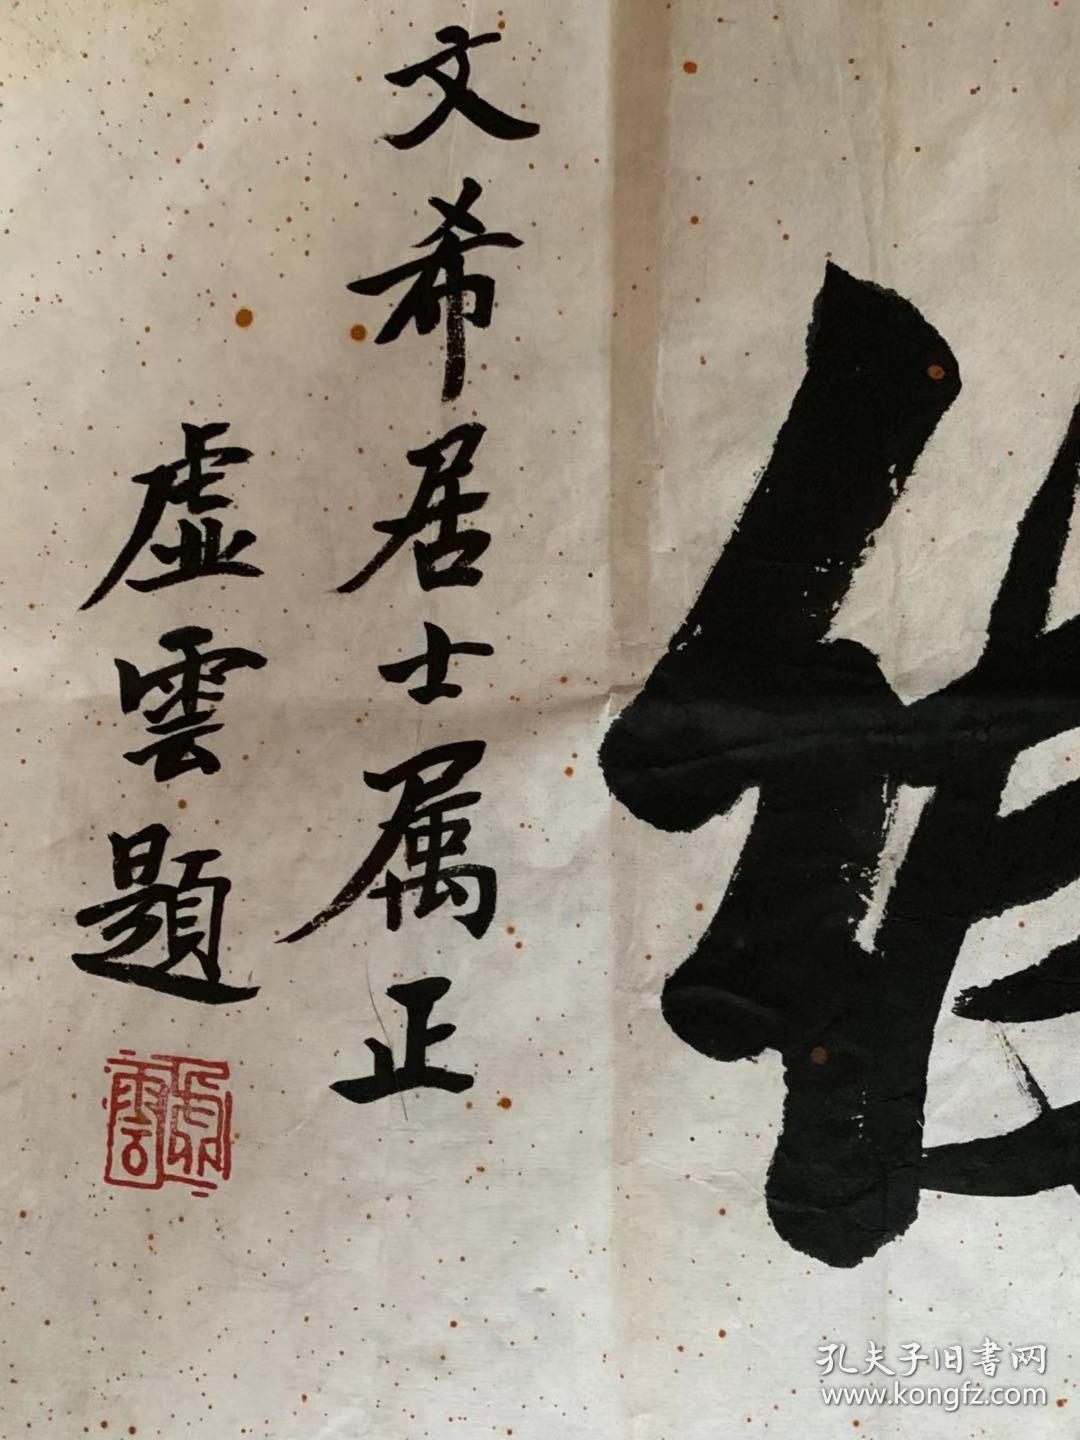 文希居士属正
虚雲題
虚雲
孔夫子旧書网
www.kongfz.com